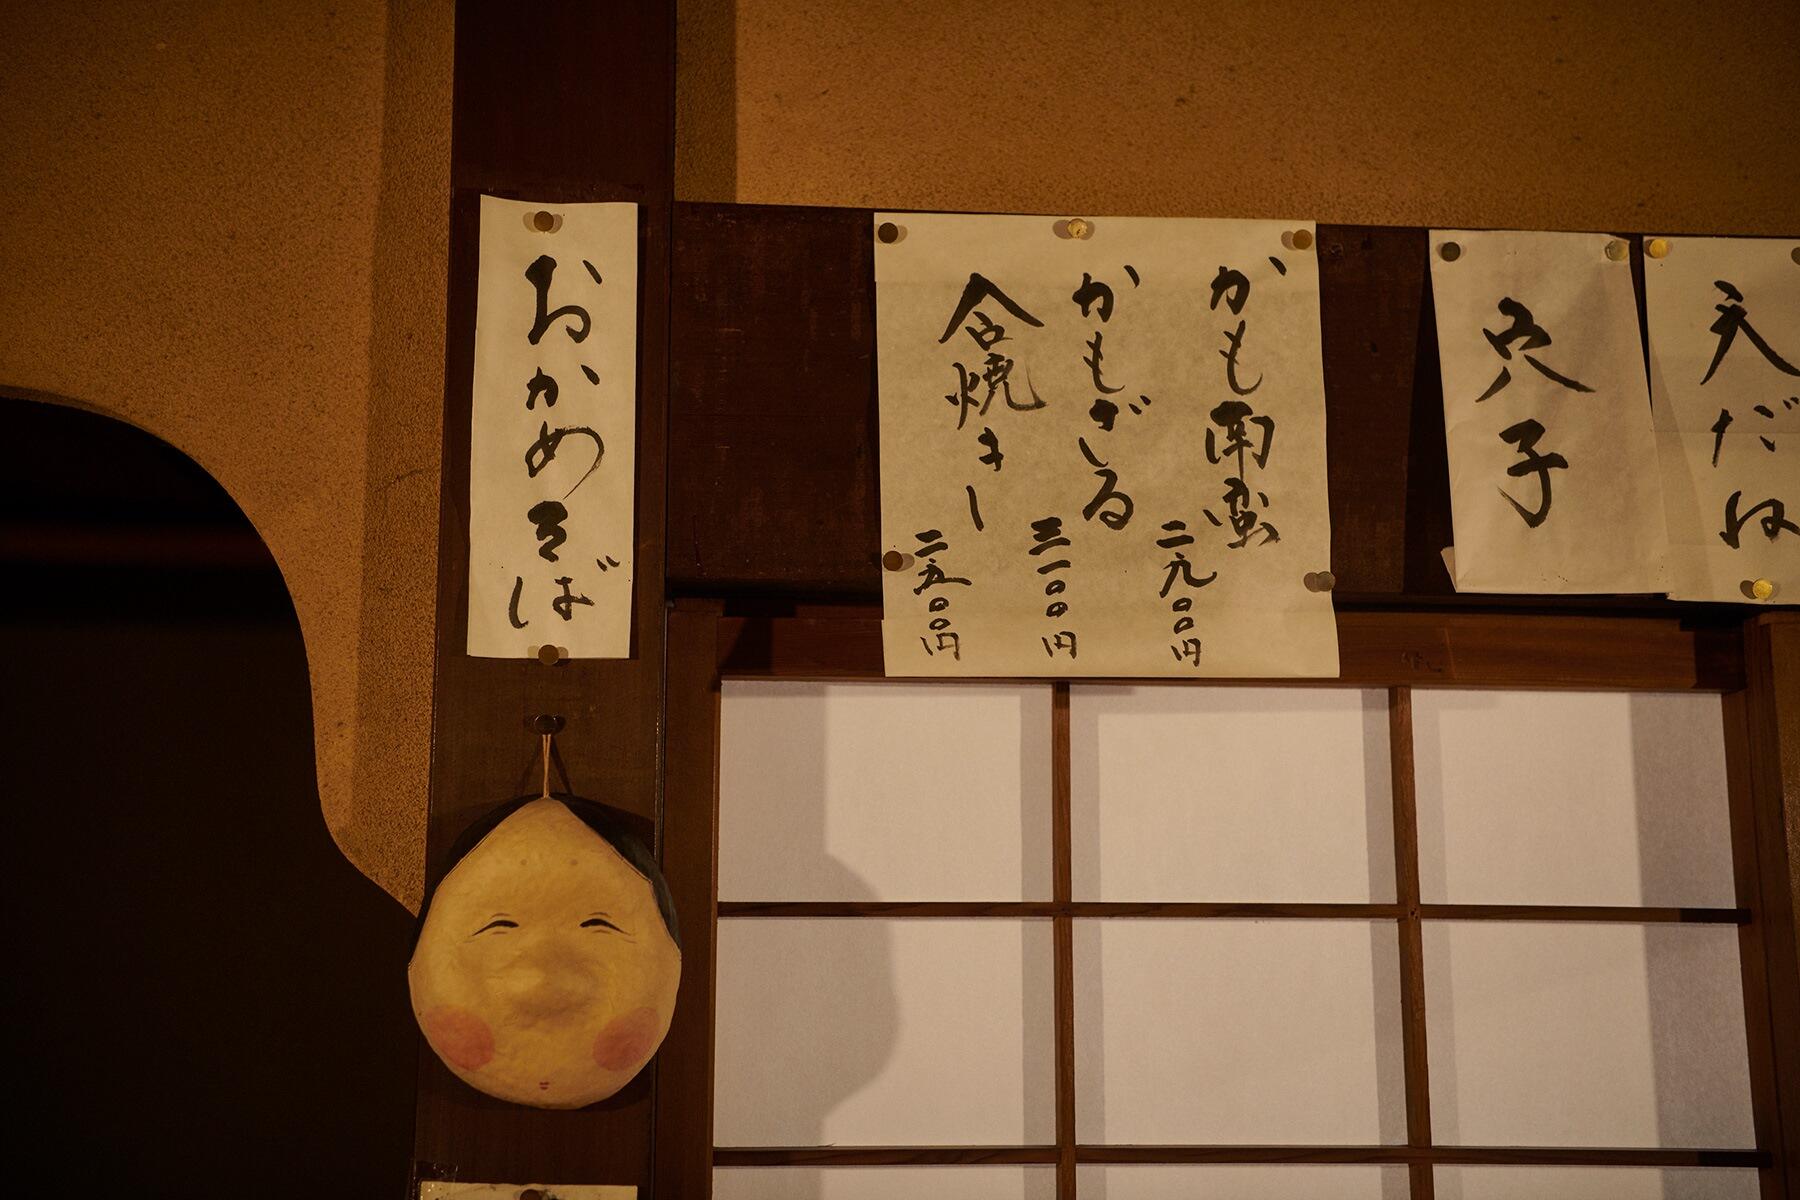 おかめそば
かも南蛮 二九〇〇円
かもざる 三一〇〇円
合焼き 二五〇〇円
穴子
天だね